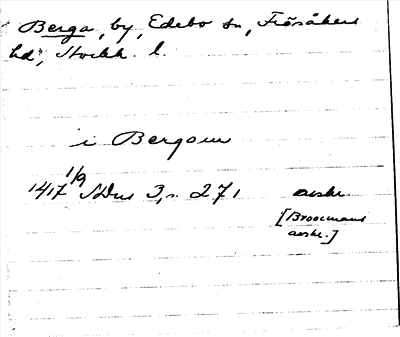 Berga, by, Edebo sn, Frösåkers
hd, Stockh. l.
i Bergom
1/9
1417 SDns 3, s. 271 avskr.
[Broocmans
avskr.]